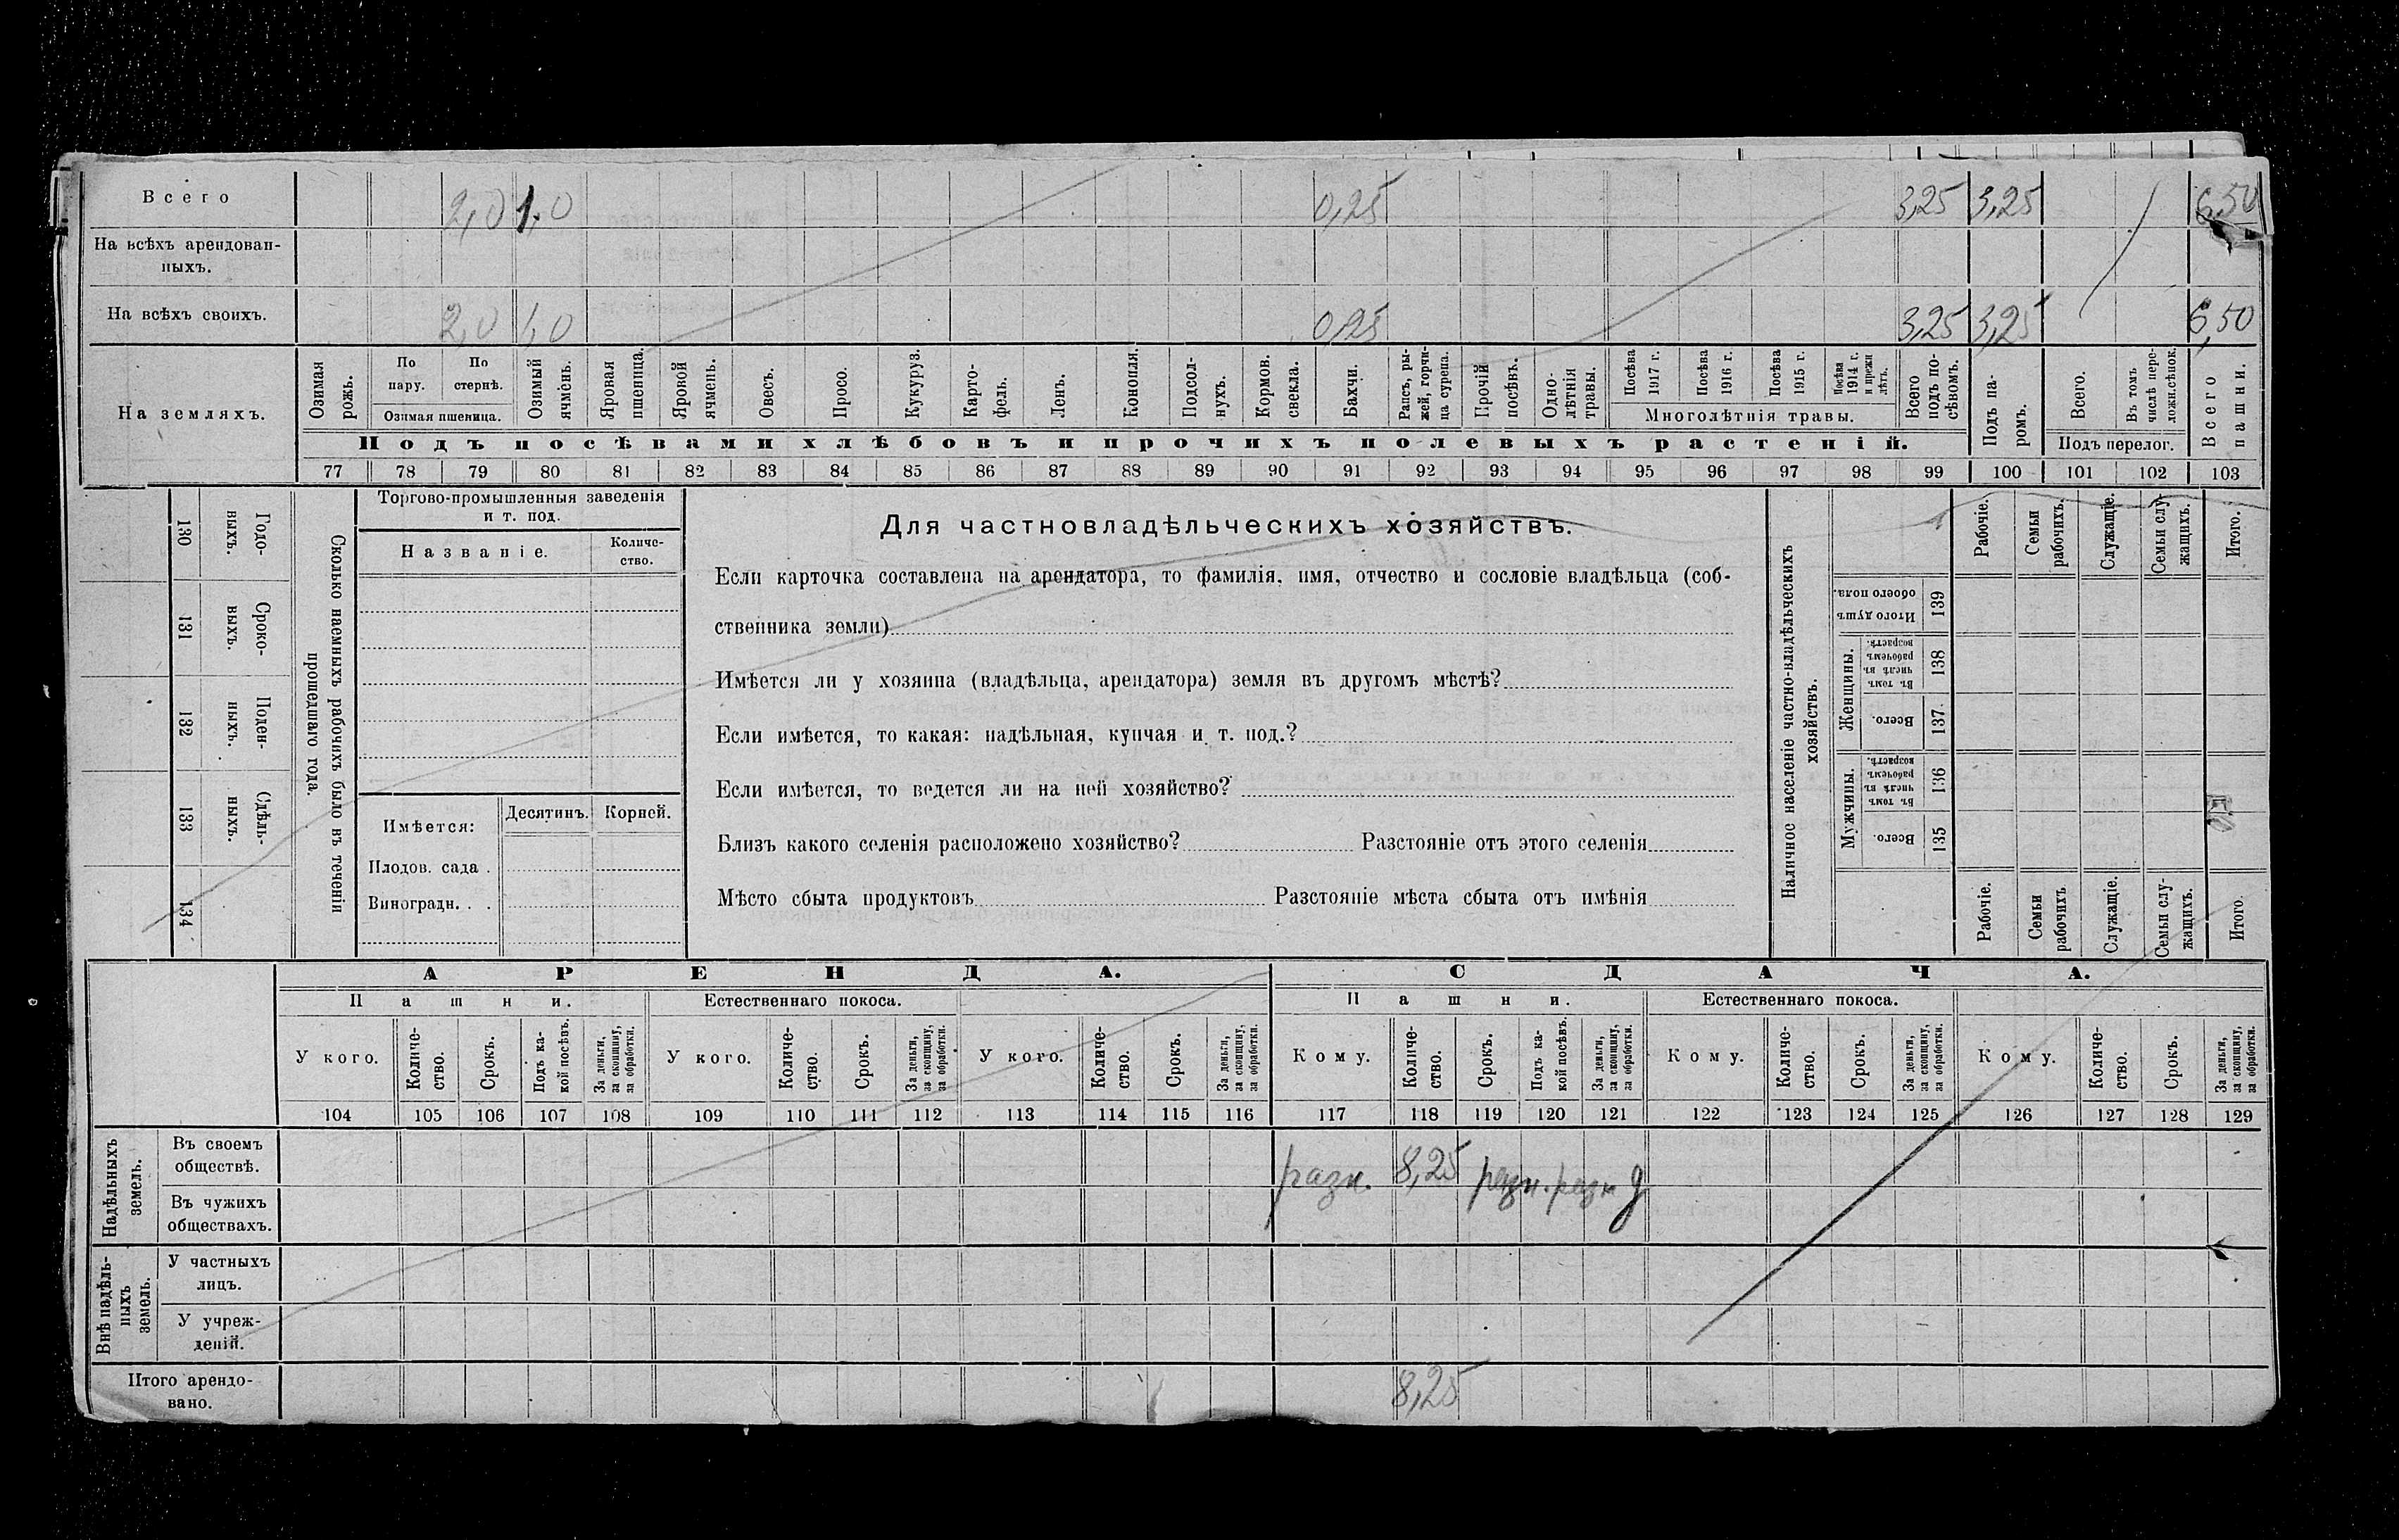 Всего 2,0 1,0 0,25 3,25 3,25 6,50
На всѣхъ арендован-
ныхъ.
На всѣхъ своихъ. 2,0 1,0 0,25 3,25 3,25 6,50
На земляхъ.
Озимая рожь.
По пару.
По стернѣ.
Озимая пшеница.
Озимый ячмень.
Яровая пшеница.
Яровой ячмень.
Овесъ.
Просо.
Кукуруз.
Карто-
фель.
Ленъ.
Конопля.
Подсол-
нухъ.
Кормов. свекла.
Бахчи.
Рапсъ, ры-
жей, горчи-
ца сурепа.
Прочій посѣвъ.
Одно-
лѣтнія травы.
Посѣва 1917 г.
Посѣва 1916 г.
Посѣва 1915 г.
Посѣва 1914 г. и прежн лѣтъ.
Многолѣтнія травы.
Всего подъ по-
сѣвомъ.
Подъ па-
ромъ.
Всего.
Въ томъ числѣ пере-
ложн.сѣнок.
Подъ перелог.
Всего пашни.
Подъ посѣвами хлѣбовъ и прочихъ полевыхъ растеній.
77 78 79 80 81 82 83 84 85 86 87 88 89 90 91 92 93 94 95 96 97 98 99 100 101 102 103
130 Годо-
ныхъ.
131 Сроко-
выхъ.
132 Поден-
ныхъ.
133 Сдѣль-
ныхъ.
134
Сколько наемныхъ рабочихъ было въ теченіи
прошедшаго года.
Торгово-промышленныя заведенія
и т. под.
Названіе.
Количе-
ство.
Имѣется:
Десятинъ. Корней.
Плодов. сада .
Виноградн. . .
Для частновладѣльческихъ хозяйствъ.
Если карточка составлена на арендатора, то фамилія, имя, отчество и сословіе владѣльца (соб-
ственника земли)
Имѣется ли у хозяина (владѣльца, арендатора) земля въ другомъ мѣстѣ?
Если имѣется, то какая: надѣльная, купчая и т. под.?
Если имѣется, то ведется ли на ней хозяйство?
Близъ какого селенія расположено хозяйство? Разстояніе отъ этого селенія
Мѣсто сбыта продуктовъ Разстояніе мѣста сбыта отъ имѣнія
Наличное населеніе частно-владѣльческихъ
хозяйствъ.
Рабочіе.
Семьи рабочихъ.
Служащіе.
Семьи слу-
жащихъ.
Итого.
Итого душъ обоего пола. 139
Женщины.
Въ томъ числѣ въ рабочемъ возрастѣ. 138
Всего. 137
Мужчины.
Въ томъ числѣ въ рабочемъ возрастѣ. 136
Всего. 135
Рабочіе.
Семьи рабочихъ
Служащіе.
Семьи слу-
жащихъ.
Итого.
АРЕНДА. СДАЧА.
Пашни. Естественнаго покоса. Пашни. Естественнаго покоса.
У кого.
Количе-
ство.
Срокъ.
Подъ ка-
кой посѣвъ.
За деньги, за скопщину, за обработки.
У кого.
Количе-
ство.
Срокъ.
За деньги, за скопщину, за обработки.
У кого.
Количе-
ство.
Срокъ.
За деньги, за скопщину, за обработки.
Кому.
Количе-
ство.
Срокъ.
Подъ ка-
кой посѣвъ.
За деньги, за скопщину, за обработки.
Кому.
Количе-
ство.
Срокъ.
За деньги, за скопщину, за обработки.
Кому.
Количе-
ство.
Срокъ.
За деньги, за скопщину, за обработки.
104 105 106 107 108 109 110 111 112 113 114 115 116 117 118 119 120 121 122 123 124 125 126 127 128 129
Надѣльныхъ земель.
Въ своемъ
обществѣ.
разн. 8,25 разн. разн д
Въ чужихъ
обществахъ.
Внѣ надѣль-
ныхъ земель.
У частныхъ
лицъ.
У учреж-
деній.
Итого арендо-
вано.
8,25